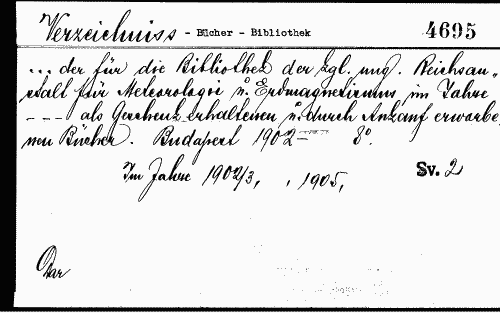 Verzeichniss - Bücher - Bibliothek 4695
... der für die Bibliothek der kgl. ung. Reichsan„
stalt für Meteorologie u. Erdmagnetismus im Jahre
--- als Geschenk erhaltenen u. durch Ankauf erworbe„
nen Bücher. Budapest 1902- 8°.
Im Jahre 1902/3, , 1905, Sv. 2
Dar